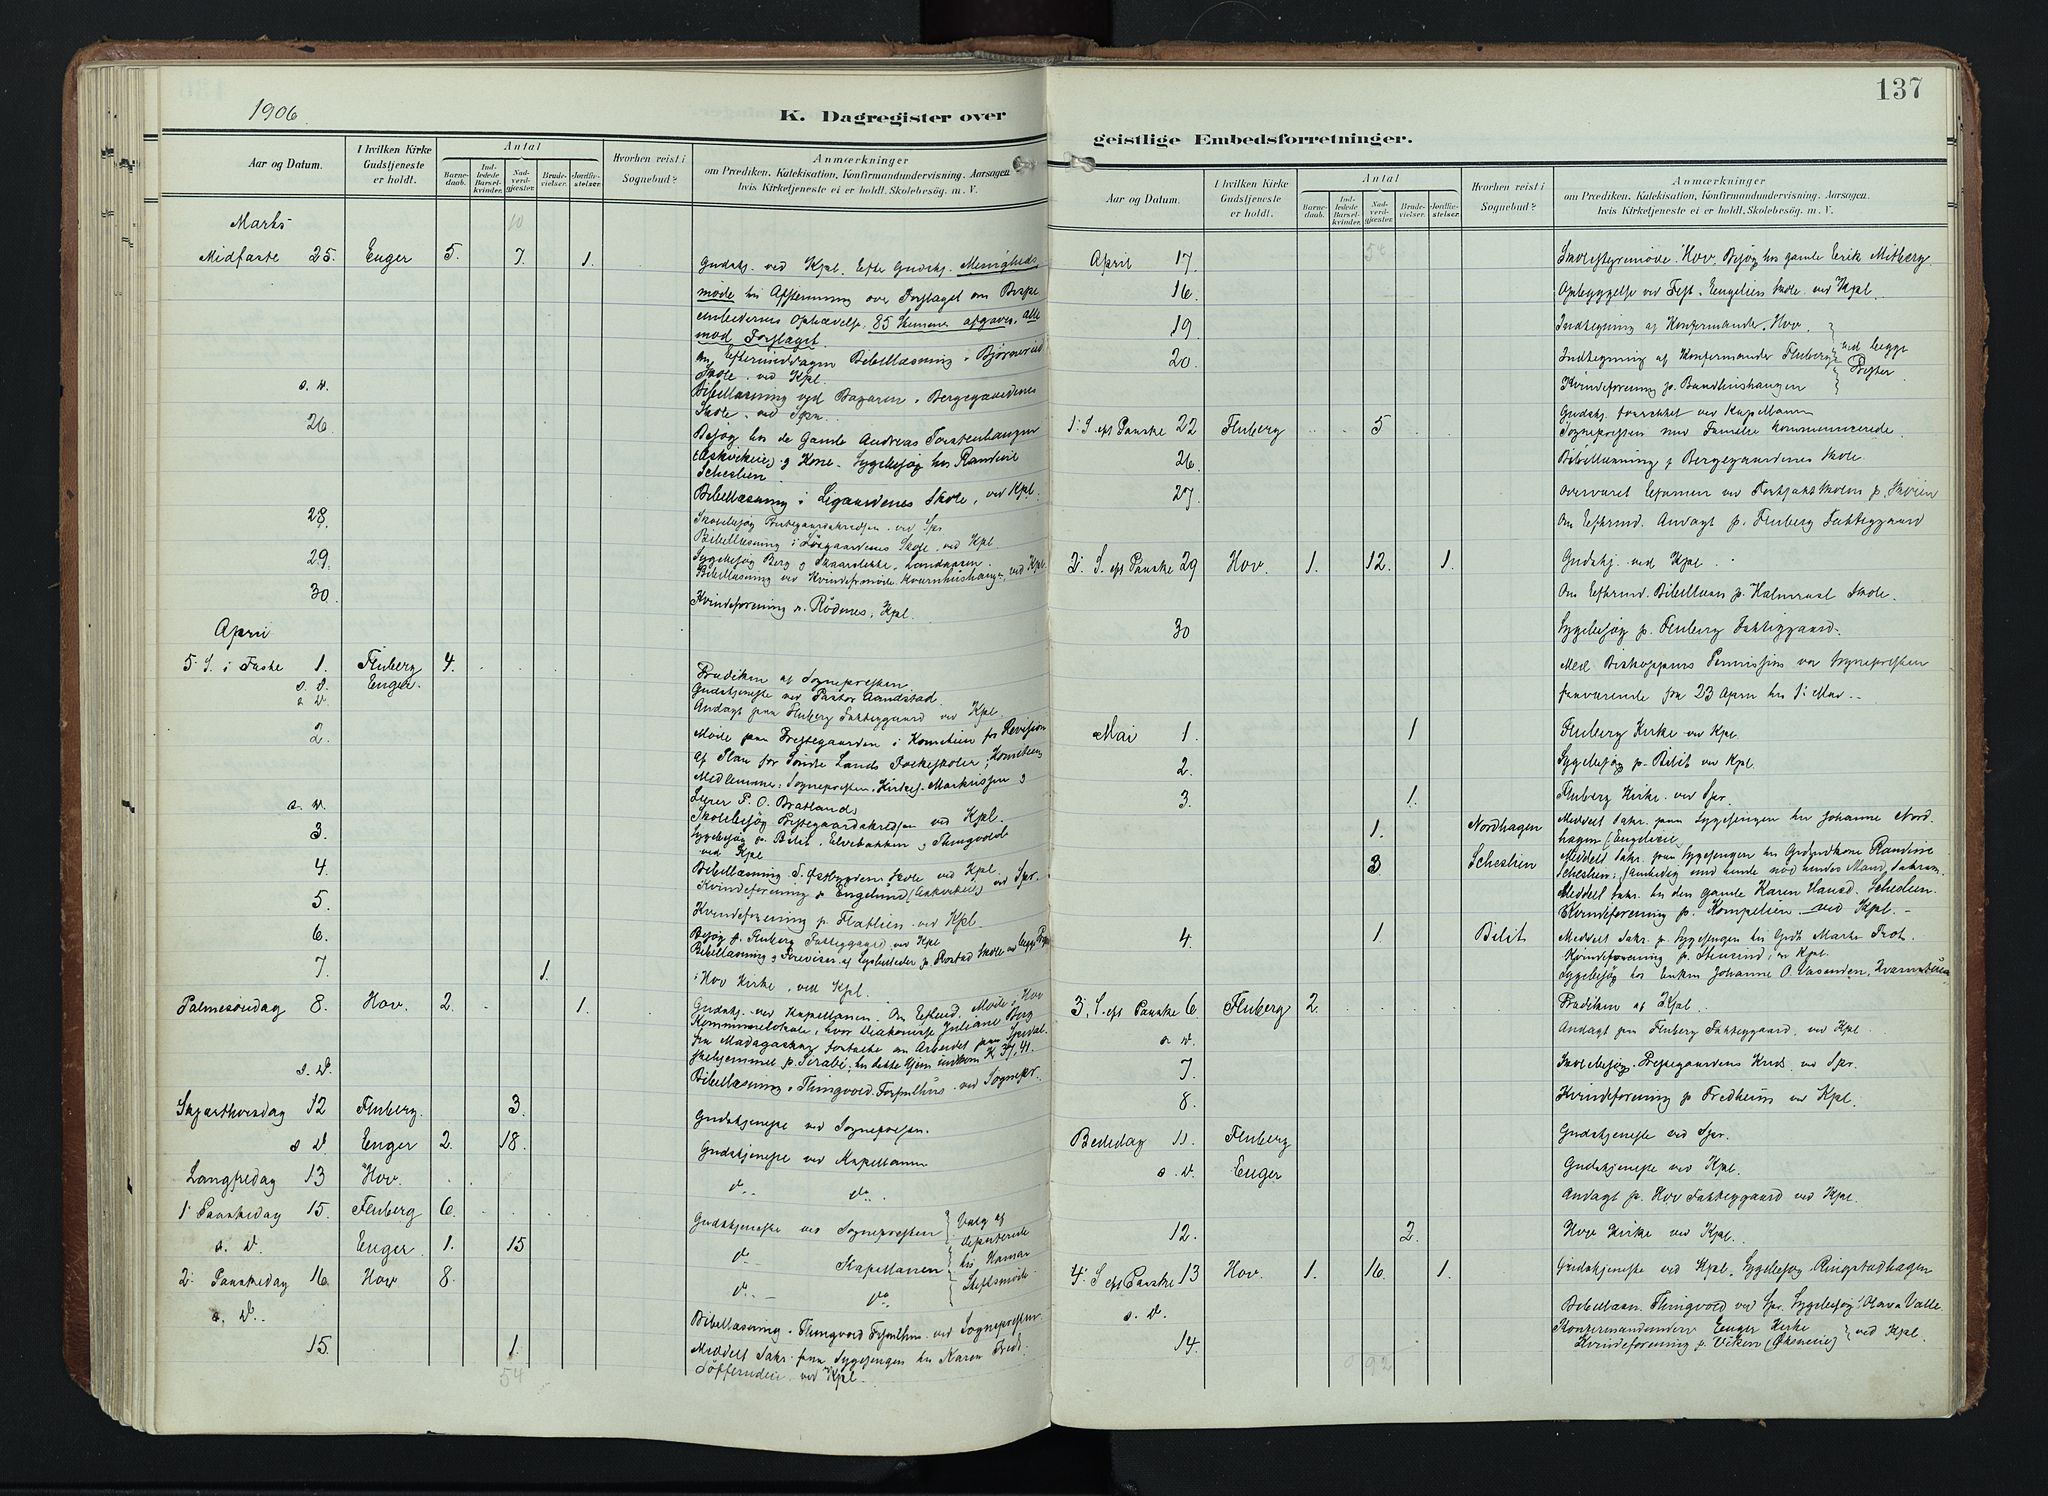 1906
K. Dagregister over
Aar og Datum.
I hvilken Kirke Gudstjeneste er holdt.
Antal
Barnedaab.
Indledede Barselkvinder.
Nadverdgjester.
Brudevielser.
Jordfæstelser.
Hvorhen reist i Sognebud?
Anmærkninger
om Prædiken, Katekisation, Konfirmandundervisning, Aarsagen
hvis Kirketjeneste ei er holdt, Skolebesøg, m. V.
Marts 10
Midfaste 25. Enger 5. 7. 1. Gudstj. ved Kpl. Efter Gudstj. Menigheds
møde til Afstemning over Forslaget om Bispe
embedernes Ophævelse. 85 Stemmer afgaves, alle
mod Forslaget.
s. D. Om Eftermiddagen Bibellæsning i
Skole ved Kpl.
Bibellæsning ved Bazaren i Bergegaardenes
Skole. ved Spr.
26. Besøg hos de Gamle Andreas Torstenhangen
og Kone. Sygebesøg hos Randine
Scheslien.
Bibellæsning i Ligaardenes Skole, ved Kpl.
28. Skolebesøg Prestegaardskredsen ved Spr.
Bibellæsning i Skole ved Kpl.
29. Sygebesøg Berg og
Bibellæsning ved Kvindeforenings ved Kpl.
30. Kvindeforening i Rødnes, Kpl.
April
5. S. i Faste 1. Fluberg 4. Prædiken af Sognepresten
s. D. Enger. Gudstjeneste ved Pastor Aandstad.
s. D. Andagt paa Fluberg Fattiggaard ved Kpl.
2. Møde paa Prestegaarden i Komiteen for Revision
af Plan for Søndre Lands Folkeskoler, Komiteens
Medlemmer: Sognepresten, Kirkes. Markussen og
Lærer P. O. Bratland.
s. D. Skolebesøg Prestegaardskredsen ved Kpl.
3. Sygebesøg paa Bilit, Elvebakken og Thingvold
ved Kpl
4. Bibellæsning S. Østbygdens Skole ved Kpl.
Kvindeforening p. Engelund ved Spr.
5. Kvindeforening p. Flatlien ved Kpl.
6. Besøg p. Fluberg Fattiggaard ved Kpl
Bibellæsning og Foreviser af Lysbilleder p. Rostad Skole ved begge Pr.
7. 1. i Hov Kirke, ved Kpl.
Palmesøndag 8. Hov. 2. 1. Gudstj. ved Kapellanen. Om Efterm. Møde i Hov
Kommunelokale, hvor Diakonisse Juliane Berg
fra Madagaskar fortalte om Arbeidet paa Spedal
skehjemmet p. Sirabe; til dette Hjem indkom K. 37,41.
s. D. Bibellæsning i Thingvold Forsamlhus ved Sognepr.
Skjærthorsdag 12 Fluberg. 3. Gudstjeneste ved Sognepresten.
s. D. Enger 2. 18. Gudstjeneste ved Kapellanen
Langfredag 13 Hov. Do Do.
1. Paaskedag 15. Fluberg 6. Gudstjeneste ved Sognepresten } Valg af
s. D. Enger. 1. 15 Do Kapellanen } deputerede
til Hamar
2. Paaskedag 16. Hov 8. Do Do } Stiftsmøde.
s. D. Bibellæsning i Thingvold Forsamlhus ved Sognepresten.
15. 1. Meddelt Sakr. paa Sygesengen til Karen Fredr.
Tøfferudeie. ved Kpl.
54
137
geistlige Embedsforretninger.
Aar og Datum.
I hvilken Kirke Gudstjeneste er holdt.
Antal
Barnedaab.
Indledede Barselkvinder.
Nadverdgjester.
Brudevielser.
Jordfæstelser.
Hvorhen reist i Sognebud?
Anmærkninger
om Prædiken, Katekisation, Konfirmandundervisning, Aarsagen
hvis Kirketjeneste ei er holdt, Skolebesøg, m. V.
54
April 17. Skolestyremøde i Hov. Besøg hos gamle Erik Mitberg.
16. Opbyggelse ved Fest i Engeliens Skole ved Kpl.
19 Indtegning af Konfirmander, Hov. } ved begge
20. Indtegning af Konfirmander Fluberg } Prester
Kvindeforening p. Bundlinshaugen
Gudstj. forrettet ved Kapellanen
1. S. eft Paaske 22 Fluberg 5 Sognepresten med Familie kommunicerede.
26. Bibellæsning p. Bergegaardenes Skole.
27. Overværet Examen ved p. Skøien
Om Efterm. Andagt p. Fluberg Fattiggaard
2. S. eft Paaske 29 Hov. 1. 12. 1. Gudstj. ved Kpl.
Om Efterm. Bibellæsn. p. Halmrast Skole.
30 Sygebesøg p. Fluberg Fattiggaard.
Med Biskoppens Permission var Sognepresten
fraværende fra 23 April til 1. Mai.
Mai 1. 1 Fluberg Kirke ved Kpl.
2. Sygebesøg p. Bilit ved Kpl.
3. 1. Fluberg Kirke ved Spr.
1. Nordhagen Meddelt Sakr. paa Sygesengen til Johanne Nord
hagen (Engelieie
3 Scheslien Meddelt Sakr. paa Sygesengen til Gaardmdkone Randine
Scheslien; samtidig med hende nød hendes Mand Sakram.
Meddelt Sakr. til den gamle Karen Hansd. Scheslien.
Kvindeforening p. Kompelien ved Kpl.
4. 1. Bilit Meddelt Sakr. p. Sygesengen til Marte
Kvindeforening p. Stenerud, ved Kpl.
Sygebesøg hos Enken Johanne O. Vasenden,
3. S. eft Paaske 6 Fluberg 2. Prædiken af Kpl.
s. D. Andagt paa Fluberg Fattiggaard, ved Kpl.
7. Skolebesøg i Prestegaardens Kreds ved Spr.
8. Kvindeforening p. Fredheim ved Kpl.
Bededag 11. Fluberg Gudstjeneste ved Spr.
s. D. Enger Gudstjeneste ved Kpl.
Andagt p. Hov Fattiggaard ved Kpl.
12. 2. Hov Kirke ved Kpl.
4. S. eft Paaske 13 Hov. 1. 16. 1. Gudstjeneste ved Kpl. Sygebesøg Ringstadhagen
s. D. Bibellæsn. Thingvold ved Spr. Sygebesøg: Olava Valle
14. Konfirmandunderv. Enger Kirke } ved Kpl.
Kvindeforening p. Viken (Øksneeie)
92